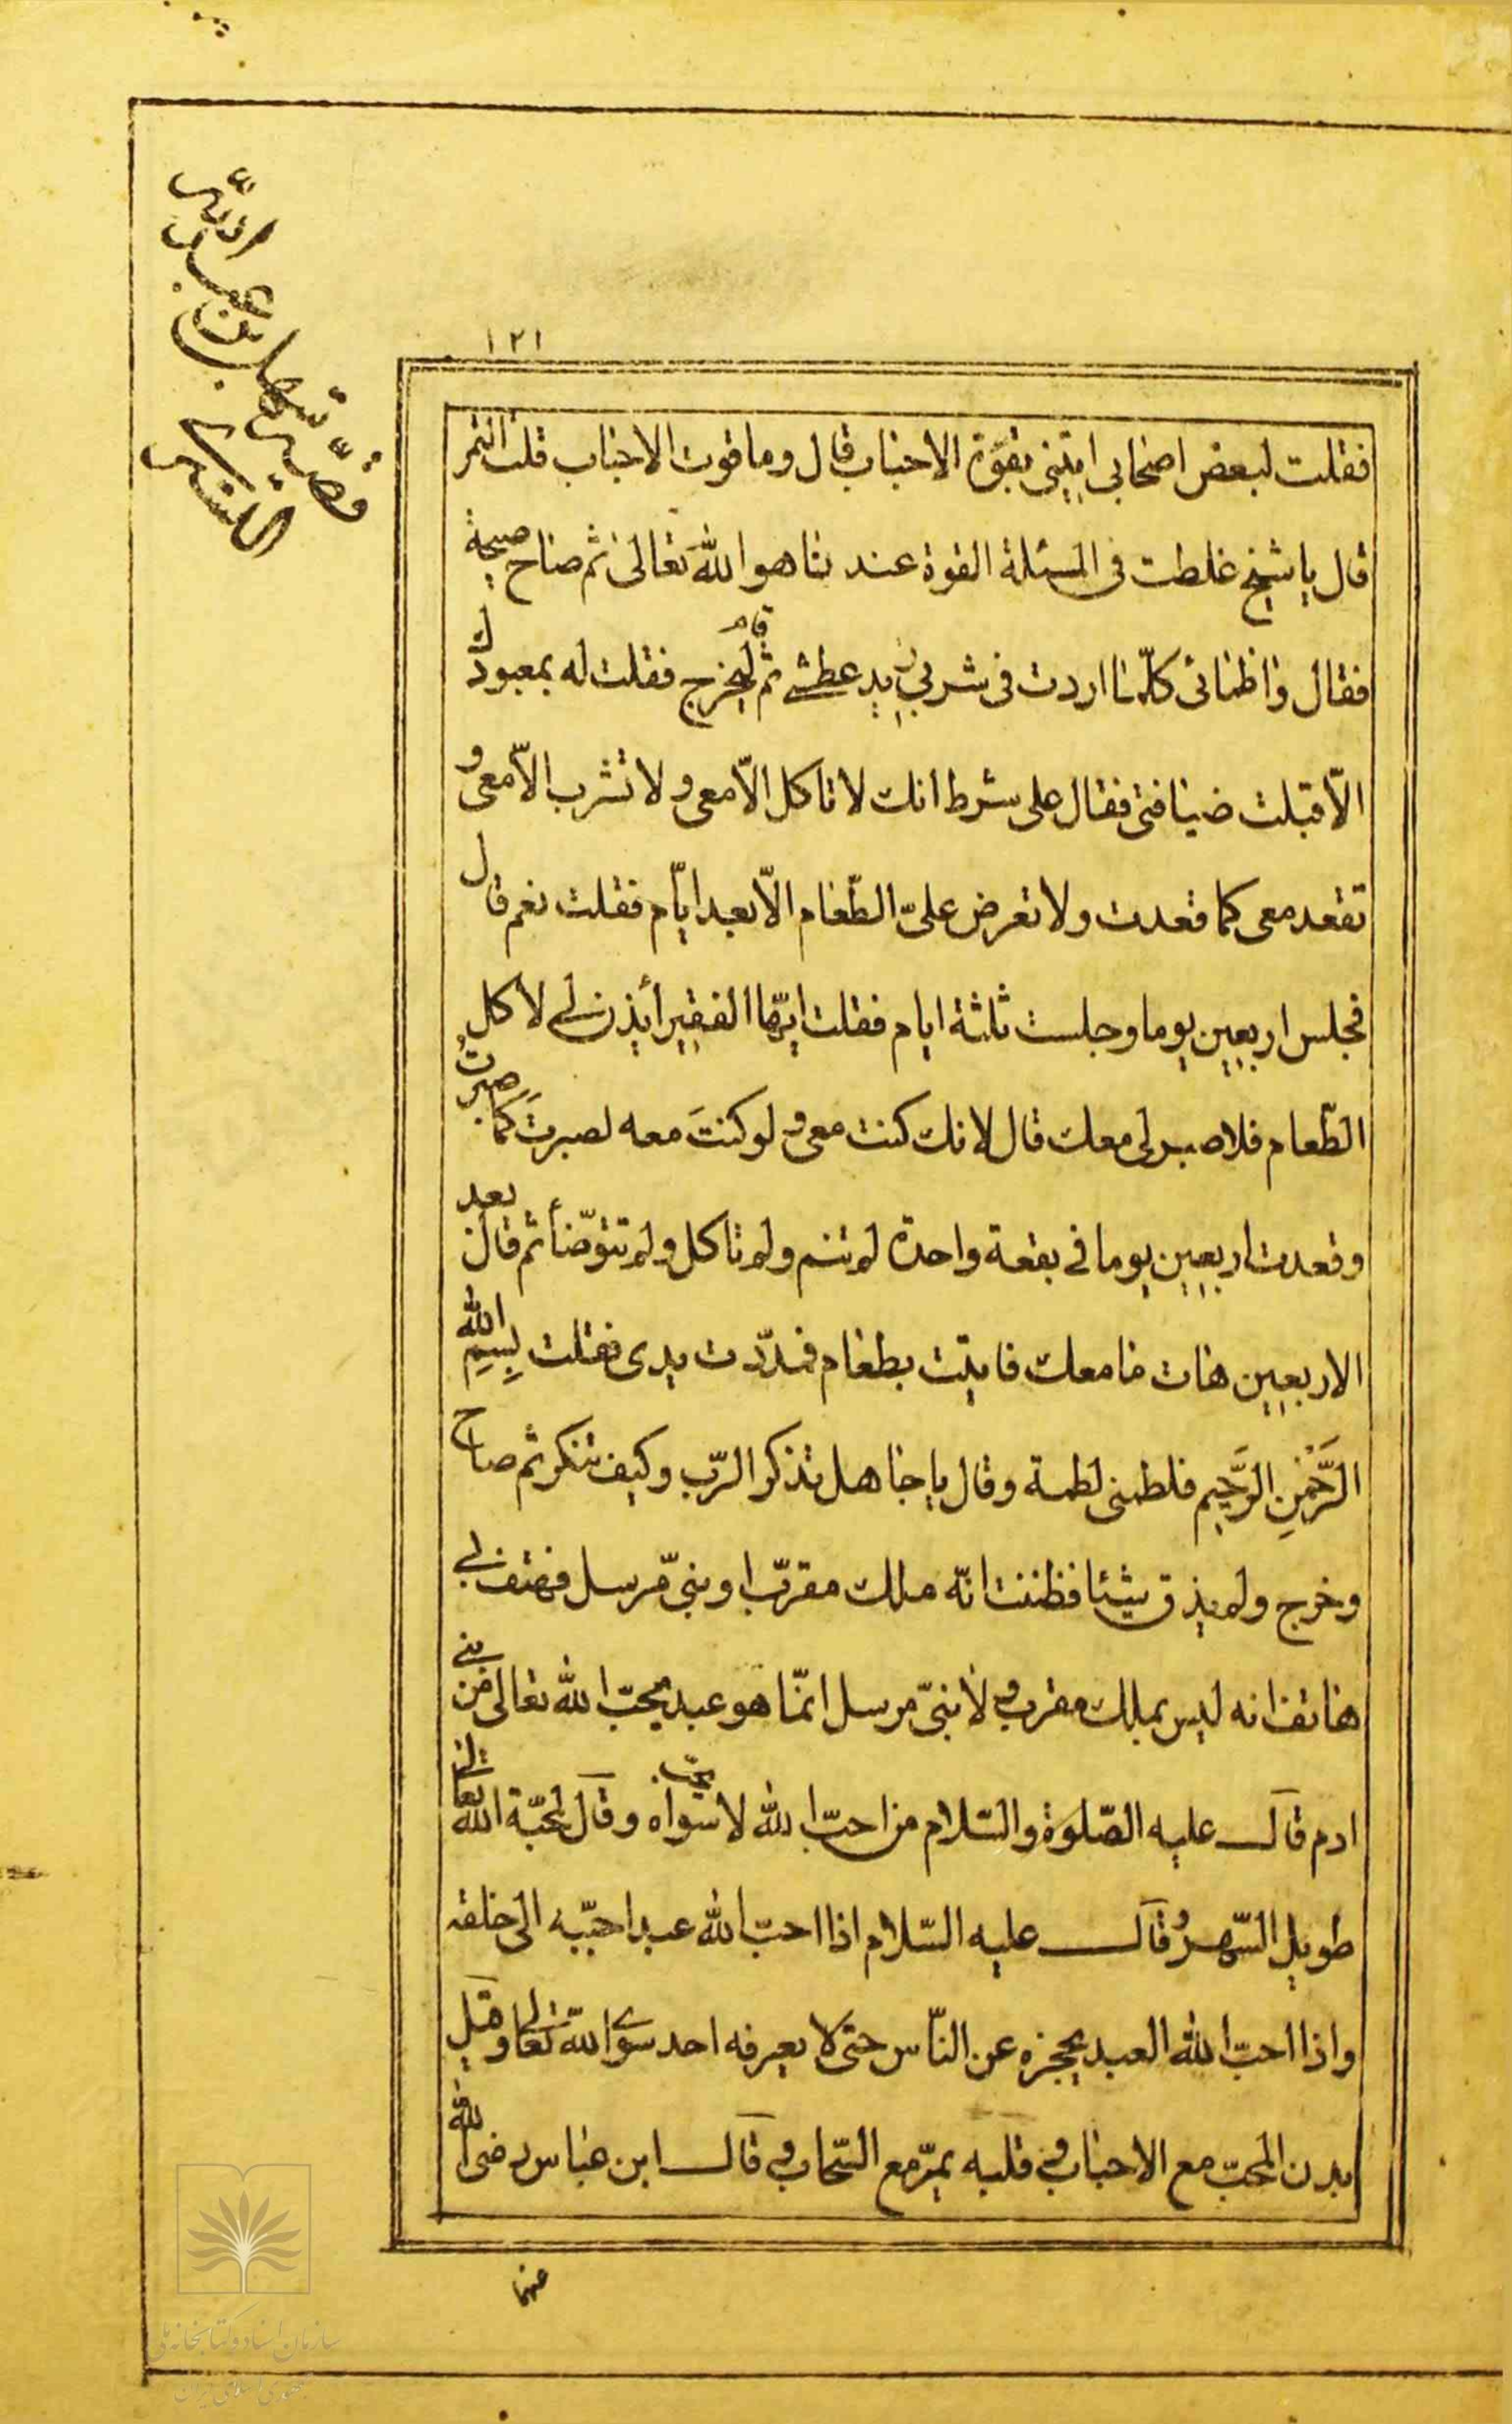 ١٢١
قصّة سهل بن عبد الله
التستري
فقلت لبعض اصحابي ايتيني بقوّة الاحباب قال وما قوت الاحباب قلت التمر
قال يا شيخ غلطت في المسئلة القوة عندنا هو الله تعالى ثم صاح صيحة
فقال واظمائى كلّما اردت في شربي يزيد عطشي ثم قام ليخرج فقلت له بمعبودك
الّا قبلت ضيافتي فقال على شرط انك لا تاكل الّا معي ولا تشرب الّا معي و
تقعد معي كما قعدت ولا تعرض علىّ الطّعام الّا بعد ايّام فقلت نعم قال
فجلس اربعين يوما وجلست ثلثة ايام فقلت ايّها الفقير أيذن لي لاكل
الطّعام فلا صبر لي معك قال لانك كنت معي ولو كنتَ معه لصبرتَ كما صبرتُ
وقعدت اربعين يوما في بقعة واحدة لم تنم ولم تاكل ولم تتوضّأ ثم قال بعد
الاربعين هات ما معك فاتيت بطعام فمدّدت يدى فقلت بِسمِ الله
الرَّحْمٰنِ الرَّحيم فلطمني لطمة وقال يا جاهل تذكر الرّب وكيف تنكر ثم صاح
وخرج ولم يذق شيئا فظننت انّه ملك مقرّب او نبيّ مّرسل فهتف بي
هاتف انه ليس بملك مقرب ولا نبيّ مرسل انّما هو عبد يحبّ الله تعالى من بني
ادم قال عليه الصّلوة والسّلام من احبّ الله لا يحبّ سواه وقال لمحبّة الله تعالى
طويل السّهر وقال عليه السّلام اذا احبّ الله عبدا حبّبه الى خلقه
واذا احبّ الله العبد يحجزه عن النّاس حتى لا يعرفه احد سوى الله تعالى وقيل
بدن المحبّ مع الاحباب وقلبه يمرّ مع السّحاب وقال ابن عباس رضى الله
عنهما
سازمان اسناد و کتابخانه ملی
جمهوری اسلامی ایران